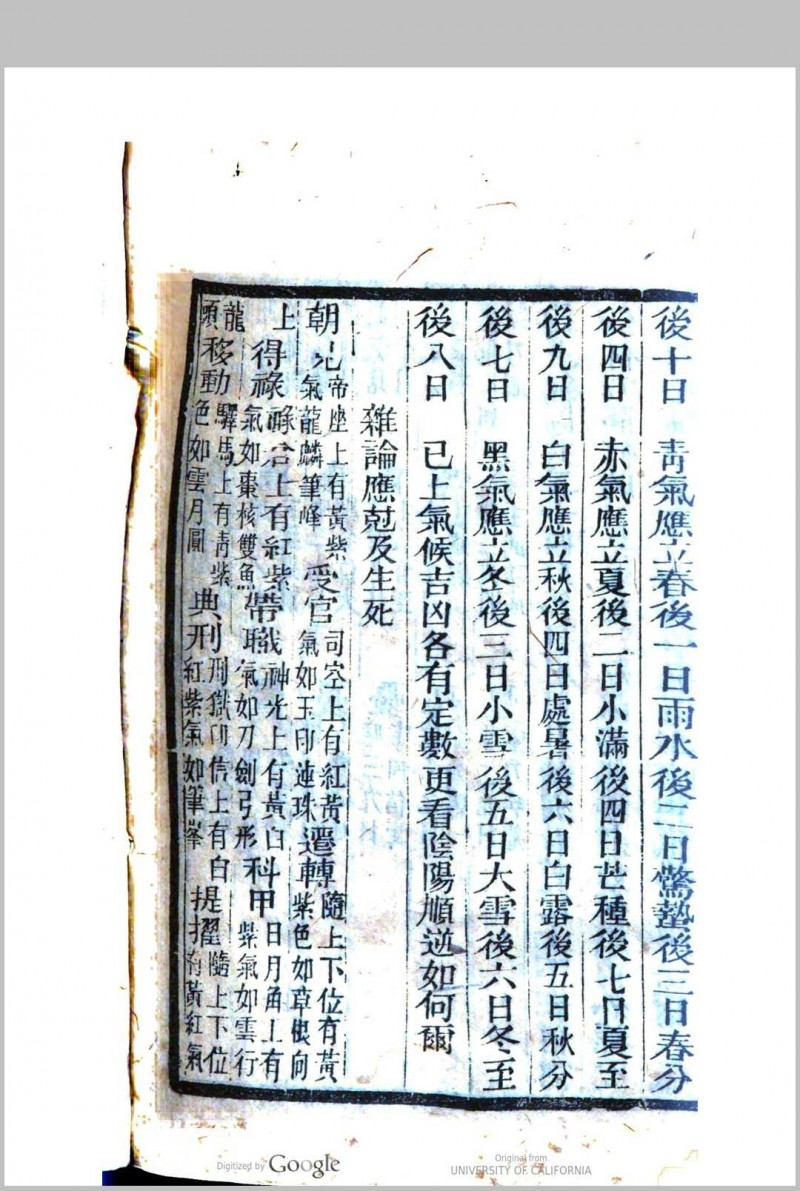 後十日　青氣應立春後一日雨水後二日驚蟄後三日春分
後四日　赤氣應立夏後二日小滿後四日芒種後七日夏至
後九日　白氣應立秋後四日處暑後六日白露後五日秋分
後七日　黑氣應立冬後三日小雪後五日大雪後六日冬至
後八日　已上氣候吉凶各有定數更看陰陽順逆如何爾
雜論應尅及生死
朝 帝座上有黃紫氣龍麟筆峰 受官 司空上有紅黃氣如玉印連珠 遷轉 隨上下位有黃紫色如草根向
上 得祿 祿倉上有紅紫氣如棗核雙魚 帶職 神光上有黃白氣如刀劍弓形 科甲 日月角上有紫氣如雲行
龍頭 移動 驛馬上有靑紫色如雲月圓 典刑 刑獄印信上有白紅紫氣如筆峯 提擢 隨上下位有黃紅氣
Digitized by Google
Original from
UNIVERSITY OF CALIFORNIA